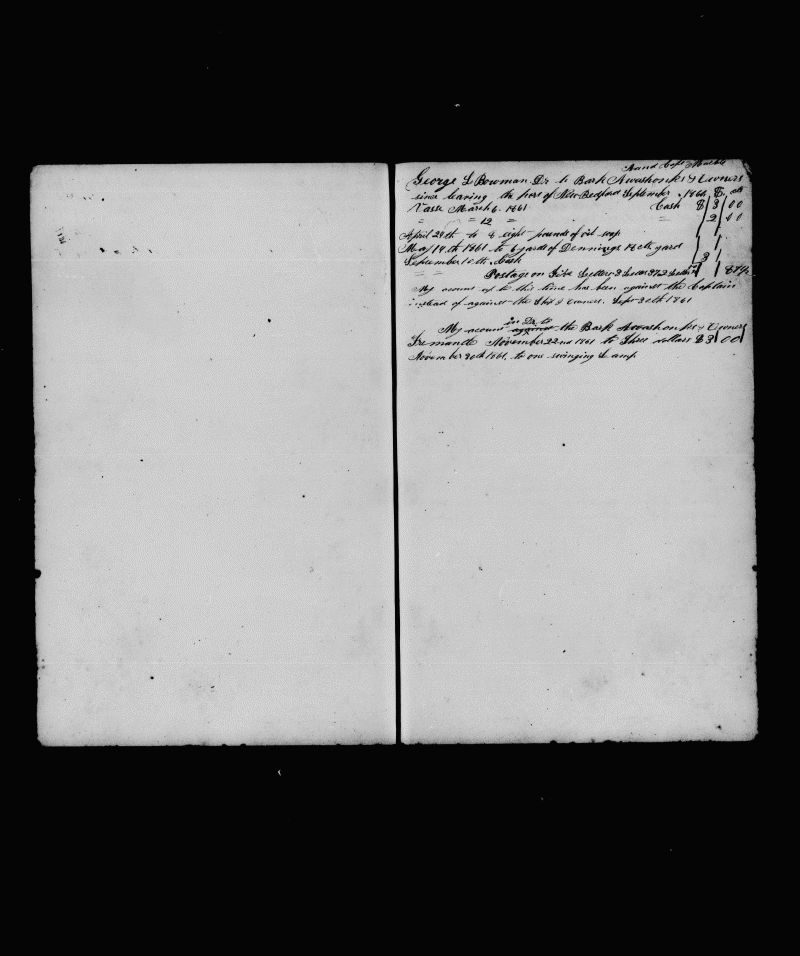 and Capt Marble
George L Bowman Dr to Bark Awashonks & Owners
since leaving the port of New Bedford September 1860, $, cts
Vasse March 6. 1861 Cash $ 3 00
" " 12 " " 2 00
April 24th to 8 eight pounds of oil soap
May 14th 1861 to 6 yards of Dennings yard
September 10th Cash 3
Postage on five Letters 2
My acount up to this time has been against the Captain
instead of against the Ship & Owners. Sept 20th 1861
in Dr to
My acount against the Bark Awashonks & Owners
Fremantle November 22nd 1861 to three dollars $3 00
November 30th 1861, to one swinging Lamp